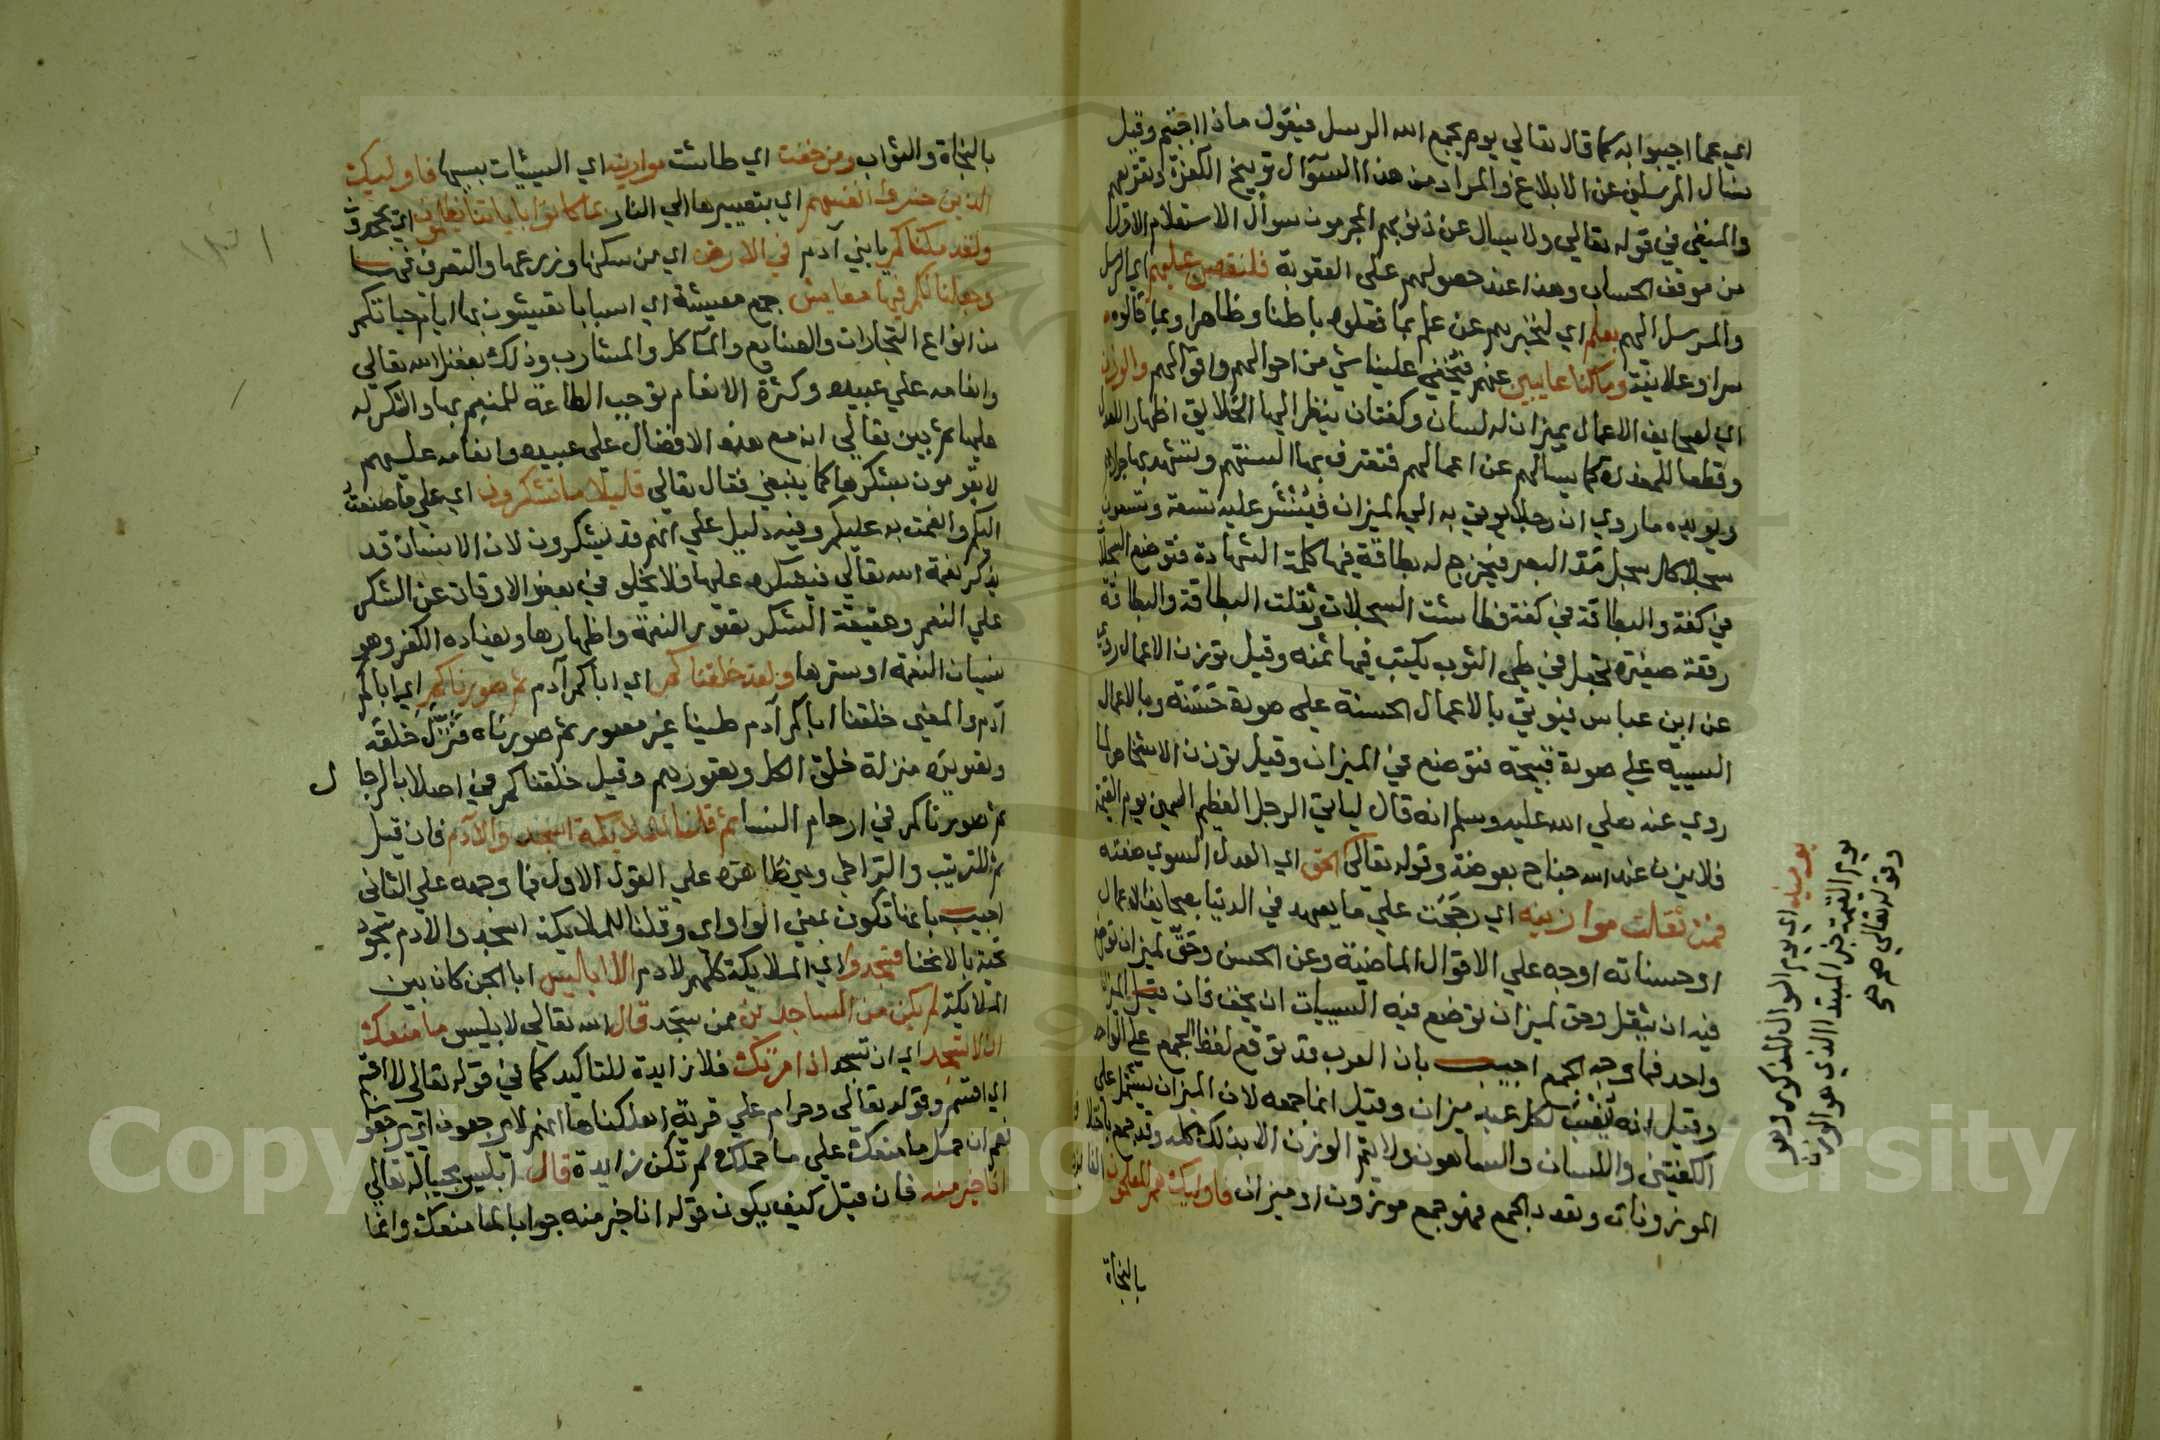 اي عما اجيبوا به كما قال تعالي يوم يجمع الله الرسل فيقول ماذا اجبتم وقيل
نسال المرسلين عن الابلاغ والمراد من هذا السؤال توبيخ الكفرة وتقريعهم
والمنفي في قوله تعالي ولا يسال عن ذنوبهم المجرمون سوأل الاستعلام الاول
من موقف الحساب وهذا عند حصولهم علي العقوبة فلنقصن عليهم اي الرسل
والمرسل اليهم بعلم اي لنخبرنهم عن علم بما فعلوه باطنا وظاهرا وبما قالوه
سرا وعلانية وما كنا غايبين عنهم فيخفي علينا شي من احوالهم واقوالهم والوزن
اي لصحايف الاعمال بميزان له لسان وكفتان ينظر اليها الخلايق اظهارا للعدل
وقطعا للمعذرة كما يسالهم عن اعمالهم فتعترف بها السنتهم وتشهد بها جوارحهم
ويويده ما روي ان رجلا يوتي به الي الميزان فيُنْشَر عليه تسعة وتسعون
سجلا كل سجل مَدّ البصر فيخرج له بطاقة فيها كلمة الشهادة فتوضع السجلات
في كفة والبطاقة في كفة فطاشت السجلات وثقلت البطاقة والبطاقة
رقعة صغيرة تجعل في طي الثوب يكتب فيها ثمنه وقيل توزن الاعمال روي
عن ابن عباس فيوتي بالاعمال الحسنة علي صورة حَسَنَة وبالاعمال
السييه علي صورة قبيحة فتوضع في الميزان وقيل توزن الاشخاص لما
روي عنه صلي الله عليه وسلم انه قال لياتي الرجل العظيم السمين يوم القيمة
فلا يزن عند الله جناح بعوضة وقوله تعالي الحق اي العدل السوي صفته
فمن ثقلت موازينه اي رجَحَت علي ما يعهد في الدنيا بصحايف الاعمال
او حسناته اوجه علي الاقوال الماضية وعن الحسن وحَقٌ لميزان توضع
فيه ان يثقل وحق لميزان توضع فيه السييات ان يخف فان قيل الميزان
واحد فما وجه الجمع اجيب بان العرب قد توقع لفظ الجمع علي الواحد
وقيل انه يُنْصَبُ لكل عبد ميزان وقيل انما جمعه لان الميزان يشتمل علي
الكفيتين واللسان والساهون ولا يتم الوزن الا بذلك كله وقد جمع باختلاف
الموزونات وتعدد الجمع فهو جمع موزون او ميزان فاوليك هم المفلحون
بالنجاة
يوميذ اي يوم السوال المذكور وهو
يوم القيمة خبر المبتدا الذي هو الوزن
وقوله تعالي صح صح
بالنجاة والثواب ومن خفت اي طاشت موازينه اي السيئات بسببها فاوليك
الذين خسروا انفسهم اي بتصييرها الي النار بما كانوا باياتنا يظلمون اي يجحدون
ولقد مكناكم يا بني آدم في الارض اي من سكنها وزرعها والتصرف فيها
وجعلنا لكم فيها معايش جمع معيشة اي اسبابا تعيشون بها ايام حياتكم
من انواع التجارات والصنايع والمآكل والمشارب وذلك بفضل الله تعالي
وانعامه علي عبيده وكثرة الانعام توجب الطاعة للمنعم بها والشكر له
عليها ثم بين تعالي انه مع هذه الافضال علي عبيده وانعامه عليهم
لا يقومون بشكرها كما ينبغي فقال تعالي قليلا ما تشكرون اي علي ما صنعت
اليكم وانعمت به عليكم وفيه دليل علي انهم قد يشكرون لان الانسان قد
يذكر نعمة الله تعالي فيشكره عليها فلا يخلو في بعض الاوقات عن الشكر
علي النعم وحقيقة الشكر تصور النعمة واظهارها ويضاده الكفر وهو
نسيان النعمة او سترها ولقد خلقناكم اي اباكم آدم ثم صورناكم اي اباكم
آدم والمعني خلقنا اباكم آدم طينا غير مصور ثم صورناه فنَزَّلَ خَلقَه
وتصويرَه منزلة خلق الكل وتصويرهم وقيل خلقناكم في اصلاب الرجال
ثم صورناكم في ارحام النسا ثم قلنا للملايكة اسجدوا لآدم فان قيل
ثم للترتيب والتراخي وهي ظاهرة علي القول الاول فما وجهه علي الثاني
اجيب بانما تكون بمعني الواو اي وقلنا للملايكة اسجدوا لادم سجود
تحية بالانحنا فسجدوا اي الملايكة كلهم لادم الا ابليس ابا الجن كان بين
الملايكة لم يكن من الساجدين ممن سجد قال الله تعالي لابليس ما منعك
ان لا تسجد اي ان تسجد اذ امرتك فلا زايدة للتاكيد كما في قوله تعالي لا اقسم
اي اقسم وقوله تعالي وحرام علي قرية اهلكناها انهم لا يرجعون اي يرجعون
نعم ان حمل ما منعك علي ما حملك لم تكن زايدة قال ابليس مجيبا له تعالي
انا خير منه فان قيل كيف يكون قوله انا خير منه جوابا لما منعك وانما
Copyright © King Saud University